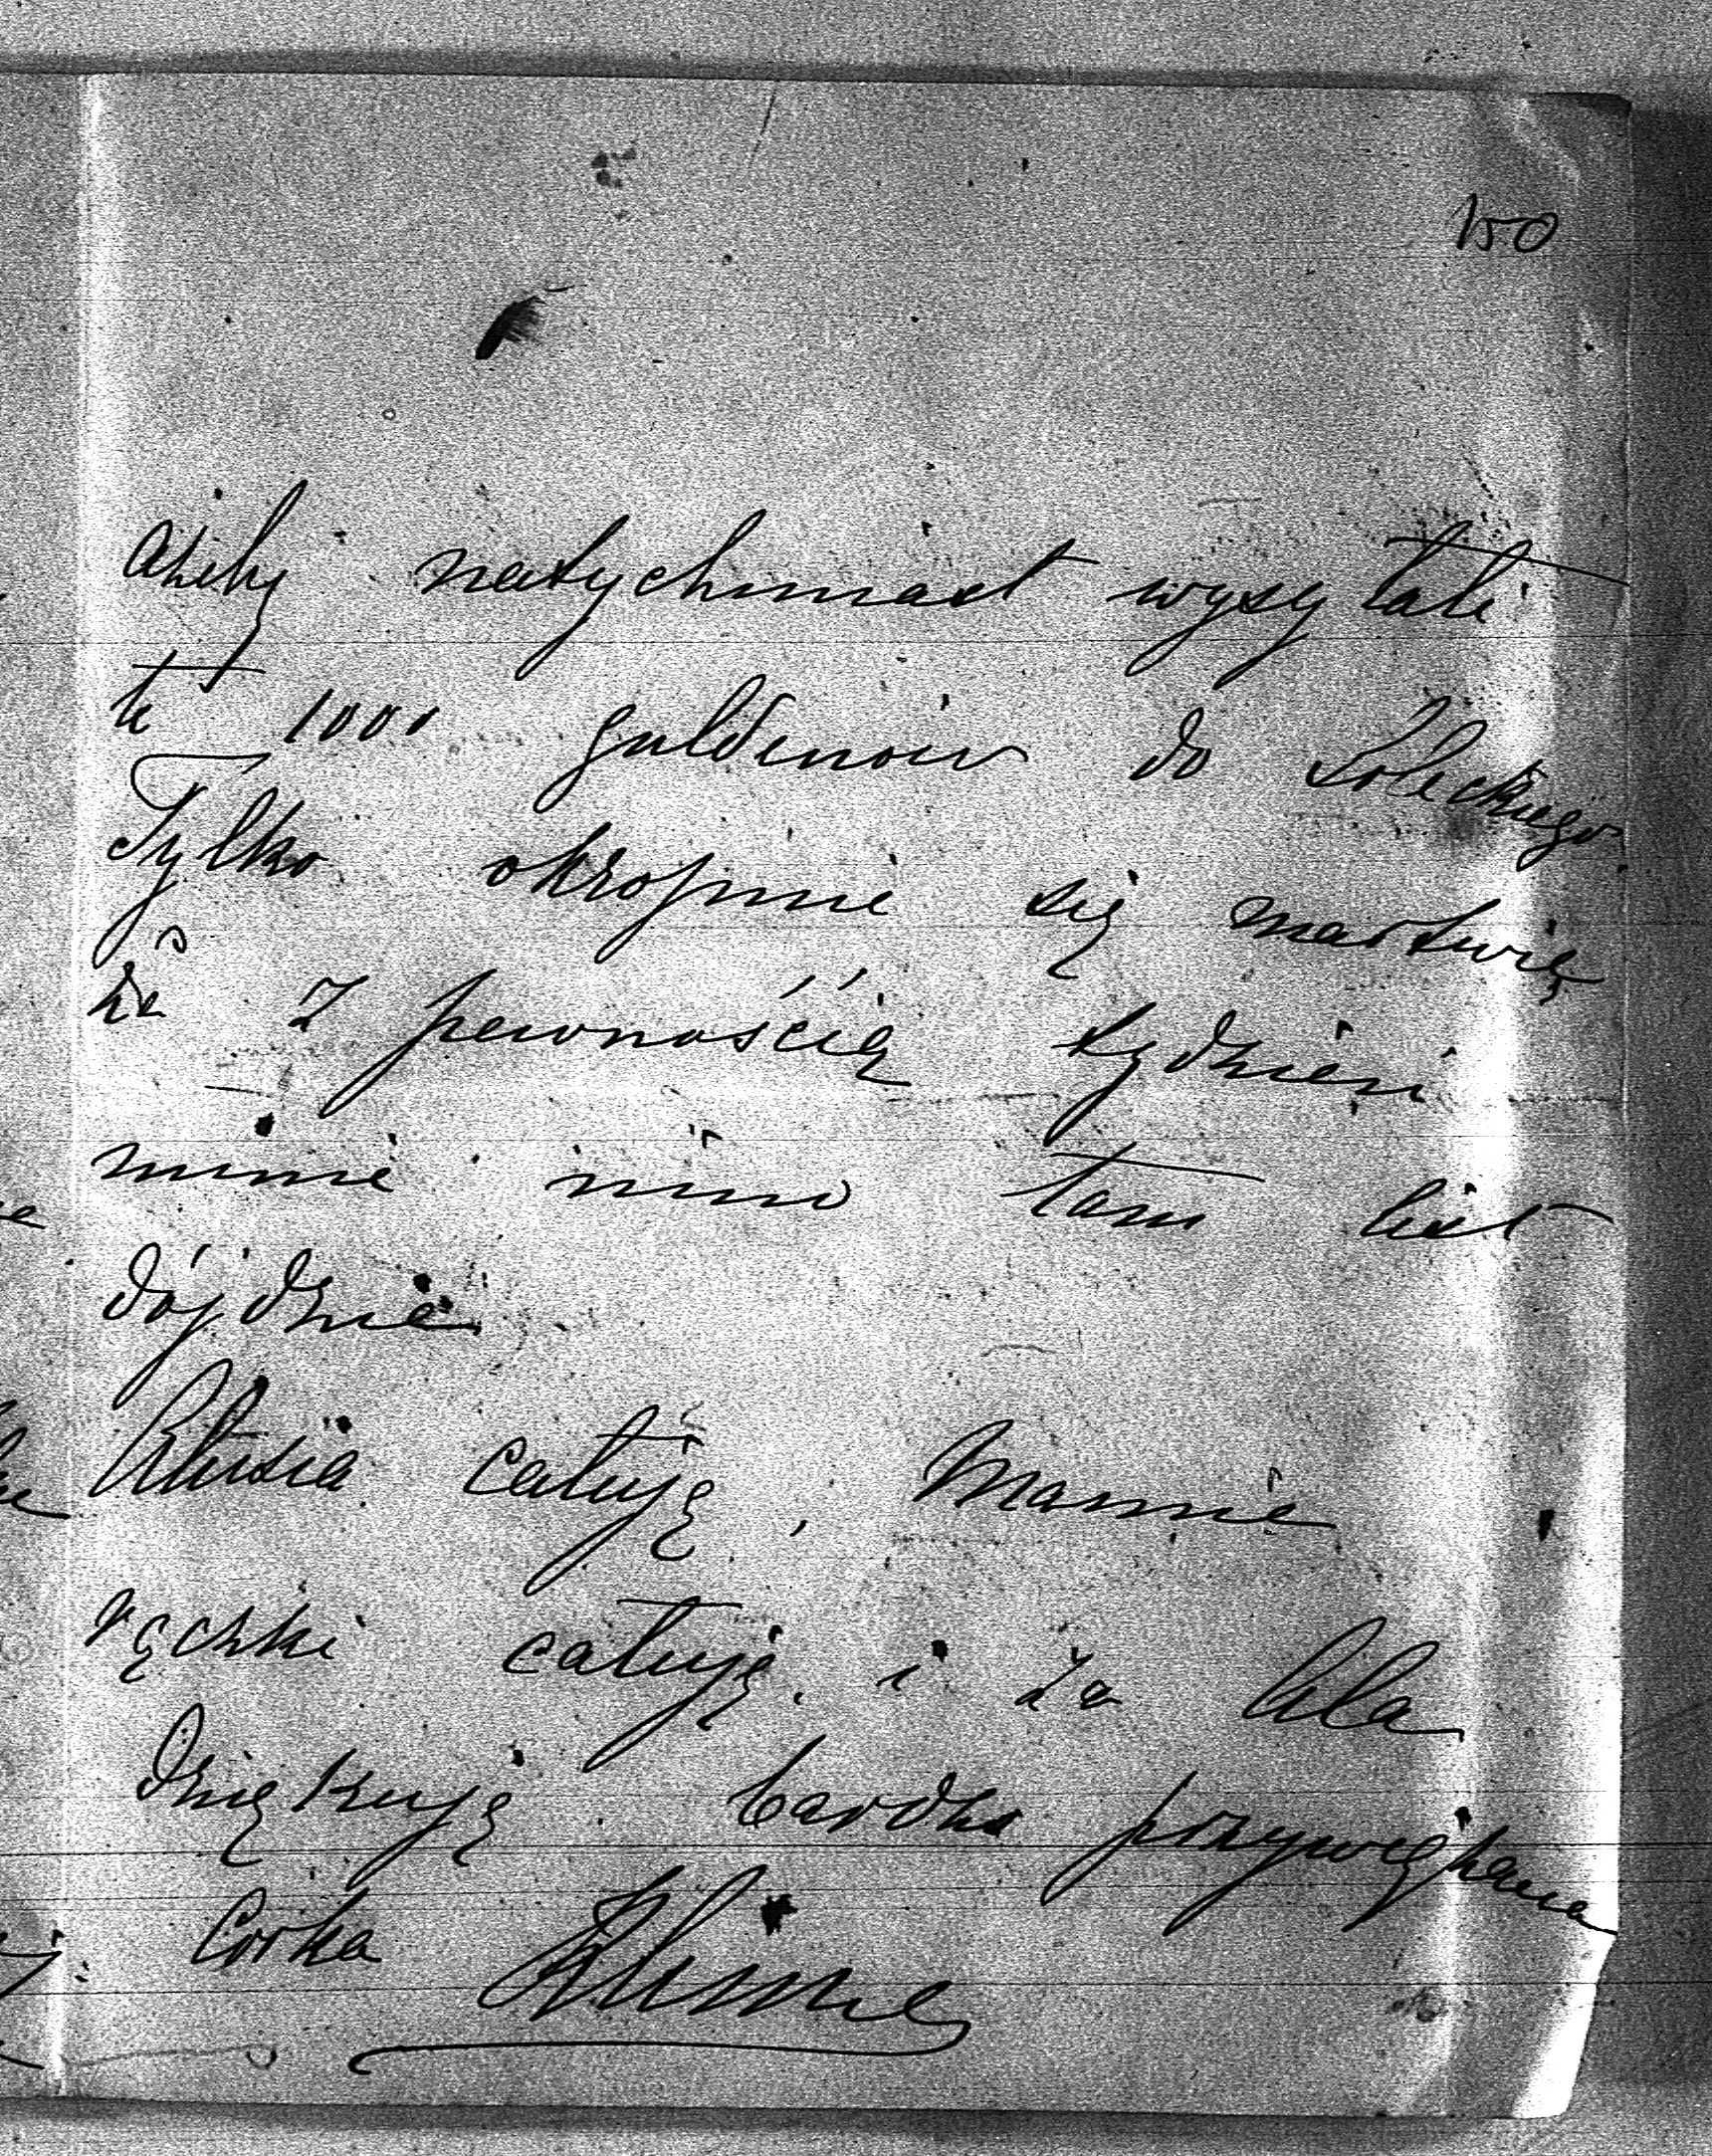 150
ażeby natychmiast wysytali
te 1000 guldenów do Żóleckiego.
Tylko okropnie się martwię
że z pewnością tydzień
minie nim tam list
dójdzie.
Klusia całuję, Mamie
rączki całuję, i za
dziękuję bardzo przywiązana
Córka